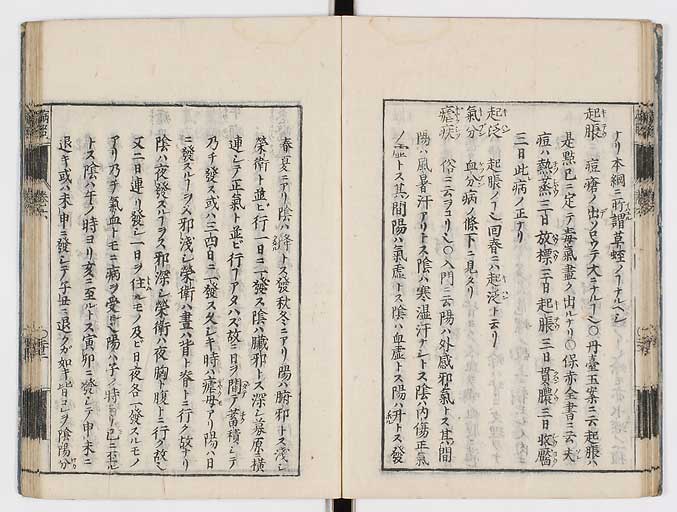 ナリ本綱ニ所謂草蛭ノ丁ナルヘシ
起脹 痘瘡ノ出ソロウテ大ニナル丁也○丹臺玉案ニ云起脹ハ
是點已ニ定テ毒氣盡ク出ルナリ○保赤全書ニ云夫
痘ハ熱蒸三日放標三日起脹三日貫膿三日收靨
三日此病ノ正ナリ
起泛 起脹ノ丁也回春ニハ起泛ト云リ
氣分 血分病ノ條下ニ見タリ
瘧疾 俗ニ云ヲコリ也○入門ニ云陽ハ外感邪氣トス其間
陽ハ風暑汗アリトス陰ハ寒温汗ナシトス陰ハ内傷正氣
ノ虚トス其間陽ハ氣虚トス陰ハ血虚トス陽ハ升トス發
春夏ニアリ陰ハ降トス發秋冬ニアリ陽ハ腑邪トス淺シ
榮衛ト並ビ行一日ニ一發ス陰ハ臟邪トス深シ募原ニ横
連シテ正氣ト並ビ行丁アタハズ故ニ日ヲ間テ蓄積シテ
乃チ發ス或ハ三四日ニ一發ス久シキ時ハ瘧母アリ陽ハ日
ニ發スルヲ邪淺シ榮衛ハ晝ハ背ト脊トニ行ク故ナリ
陰ハ夜發スルヲ邪深シ榮衛ハ夜胸ト腹トニ行ク故也
又二日連リ發シ一日ヲ住ルモノ及ビ日夜各一發スルモノ
アリ乃チ氣血トモニ病ヲ受ル也陽ハ子ノ時ヨリ巳ニ至
トス陰ハ午ノ時ヨリ亥ニ至ルトス寅卯ニ發シテ申未ニ
退キ或ハ未申ニ發シテ子丑ニ退クガ如キ皆コレヲ陰陽分